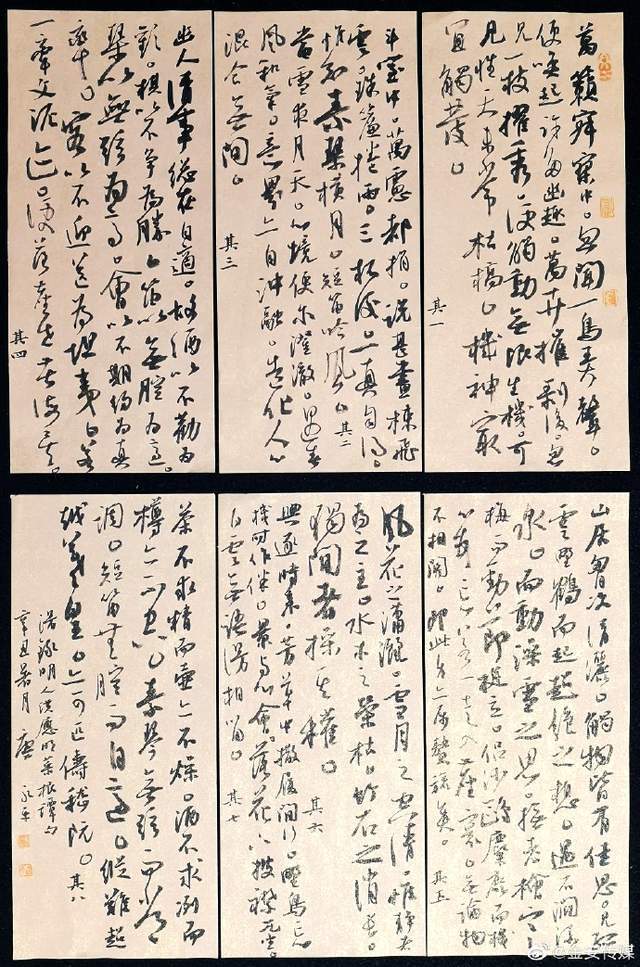 萬籟寂寥中。忽聞一鳥弄聲。
便喚起許多幽趣。萬卉摧剝後。忽
見一枝擢秀。便觸動無限生機。可
見性天未常枯槁。機神最
宜觸發。
其一
斗室中。萬慮都捐。說甚畫棟飛
雲。珠簾捲雨。三杯後。一真自得。
惟知素琴橫月。短笛吟風。其二
當雪夜月天。心境便爾澄澈。遇春
風和氣。意界亦自沖融。造化人心
混合無間。
其三
幽人清事總在自適。故酒以不勸為
歡。棋以不爭為勝。笛以無腔為適。
琴以無弦為高。會以不期約為真
率。客以不迎送為坦夷。若
一牽文泥迹。便落塵世苦海矣。
其四
山居胸次清灑。觸物皆有佳思。見孤
雲野鶴而起超絕之想。遇石澗流
泉。而動澡雪之思。撫老檜寒
梅而勁節挺立。侶沙鷗麋鹿而機
心頓忘。若一走入塵寰。無論物
不相關。即此身亦屬贅旒矣。其五
風花之瀟灑。雪月之空清。惟靜者
為之主。水木之榮枯。竹石之消長。
獨閒者操其權。其六
興逐時來。芳草中撒履閒行。野鳥忘
機時作伴。景與心會。落花下披襟兀坐。
白雲無語漫相留。其七
茶不求精而壺亦不燥。酒不求冽而
樽亦不空。素琴無弦而常
調。短笛無腔而自適。縱難超
越羲皇。亦可匹儔嵇阮。其八
錄明人洪應明菜根譚句
辛丑暮月唐永平